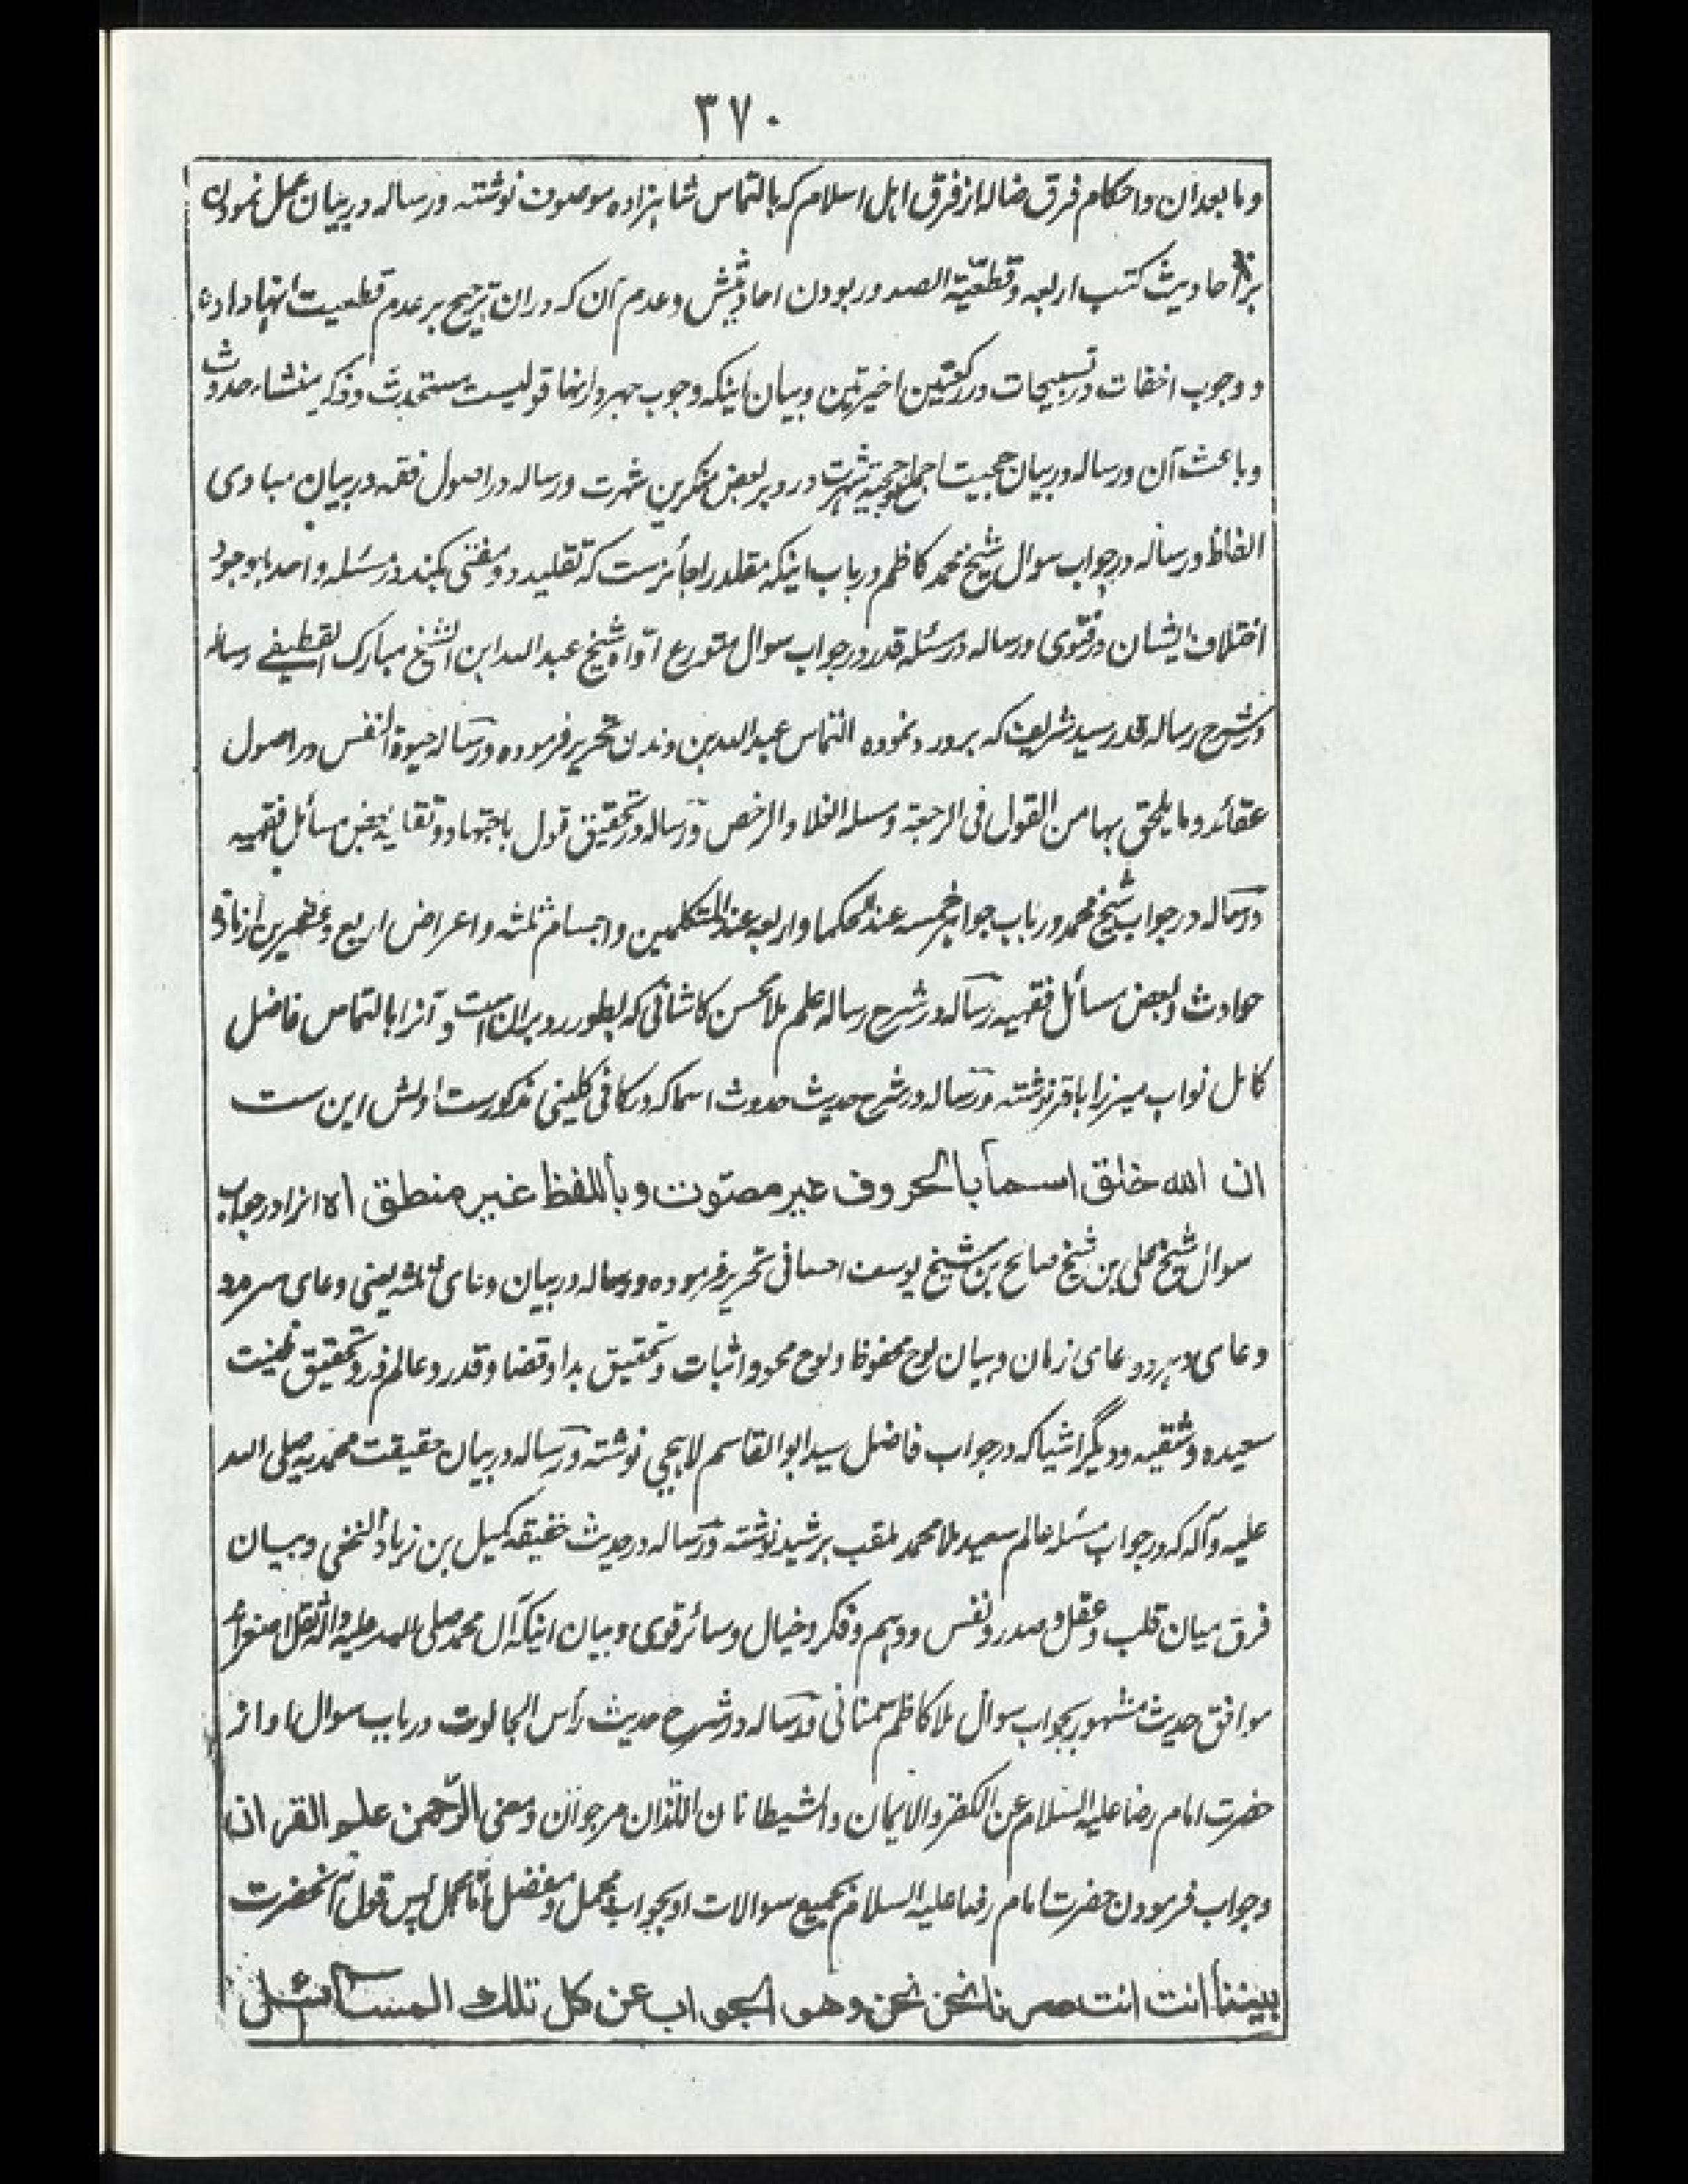 ۳۷۰
و ما بعد ان و احکام فرق ضاله از فرق اهل اسلام که بالتماس شاهزاده موصوف نوشته و رساله در بیان عمل نمودن
بر احادیث کتب اربعه و قطعیّة الصدور بودن احادیثش و عدم آن که در ان ترجیح بر عدم قطعیت انها داده
و وجوب اخفات در تسبیحات در رکعتین اخیرتین و بیان اینکه وجوب جهر در انها قولیست مستحدث و ذکر منشاء حدوث
و باعث آن و رساله در بیان حجیت اجماع و حجیة شهرت و رد بر بعض منکرین شهرت و رساله در اصول فقه در بیان مبادی
الفاظ و رساله در جواب سوال شیخ محمد کاظم در باب اینکه مقلد را جائزست که تقلید دو مفتی بکند در مسئله واحد با وجود
اختلاف ایشان در فتوی و رساله در مسئله قدر در جواب سوال متورع اوّاه شیخ عبد الله ابن الشیخ مبارک القطیفے رساله
در شرح رساله قدر سید شریف که برو رد نموده التماس عبد الله بن دندن تحریر فرموده و رساله حیوة النفس در اصول
عقائد و ما یلحق بها من القول فی الرجعة و مسئله الغلا و الرخص و رساله در تحقیق قول باجتهاد و تقلید و بعض مسائل فقهیه
و رساله در جواب شیخ محمد در باب جواهر خمسه عند الحکما و اربعه عند المتکلمین و اجسام ثلثه و اعراض اربع و عشرین
حوادث و بعض مسائل فقهیه رساله در شرح رساله علم ملا محسن کاشانی که بطور رد بران است و آنرا بالتماس فاضل
کامل نواب میرزا باقر نوشته و رساله در شرح حدیث حدوث اسما که در کافی کلینی مذکورست اولش این ست
ان الله خلق اسماً بالحروف غیر مصتوت و باللفظ غیر منطق اه انرا در جواب
سوال شیخ علی بن شیخ صالح بن شیخ یوسف احسائی تحریر فرموده و رساله در بیان وعای ثلثه یعنی وعای سرمد
وعای دهر و وعای زمان و بیان لوح محفوظ و لوح محو و اثبات و تحقیق بدا و قضا و قدر و عالم ذر و تحقیق طینت
سعیده و شقیه و دیگر اشیا که در جواب فاضل سید ابو القاسم لاهیجی نوشته و رساله در بیان حقیقت محمدیه صلی الله
علیه و آله که در جواب مسئله عالم سعید ملا محمد ملقب برشید نوشته و رساله در حدیث حقیقه کمیل بن زیاد النخعی و بیان
فرق میان قلب و عقل و صدر و نفس و وهم و فکر و خیال و سائر قوی و بیان اینکه آل محمد صلی الله علیه و اله ثقل اصغراند
موافق حدیث مشهور بجواب سوال ملا کاظم سمنانی و رساله در شرح حدیث رأس الجالوت در باب سوال او از
حضرت امام رضا علیه السلام عن الکفر و الایمان و الشیطانان اللّذان مرجوان و معنی الرّحمن علم القران
و جواب فرمودن حضرت امام رضا علیه السلام بجمیع سوالات او بجواب مجمل و مفصل امّا مجمل پس قول آنحضرت
بیننا انت انت صرنا نحن نحن و هو الجواب عن کل تلك المسائل